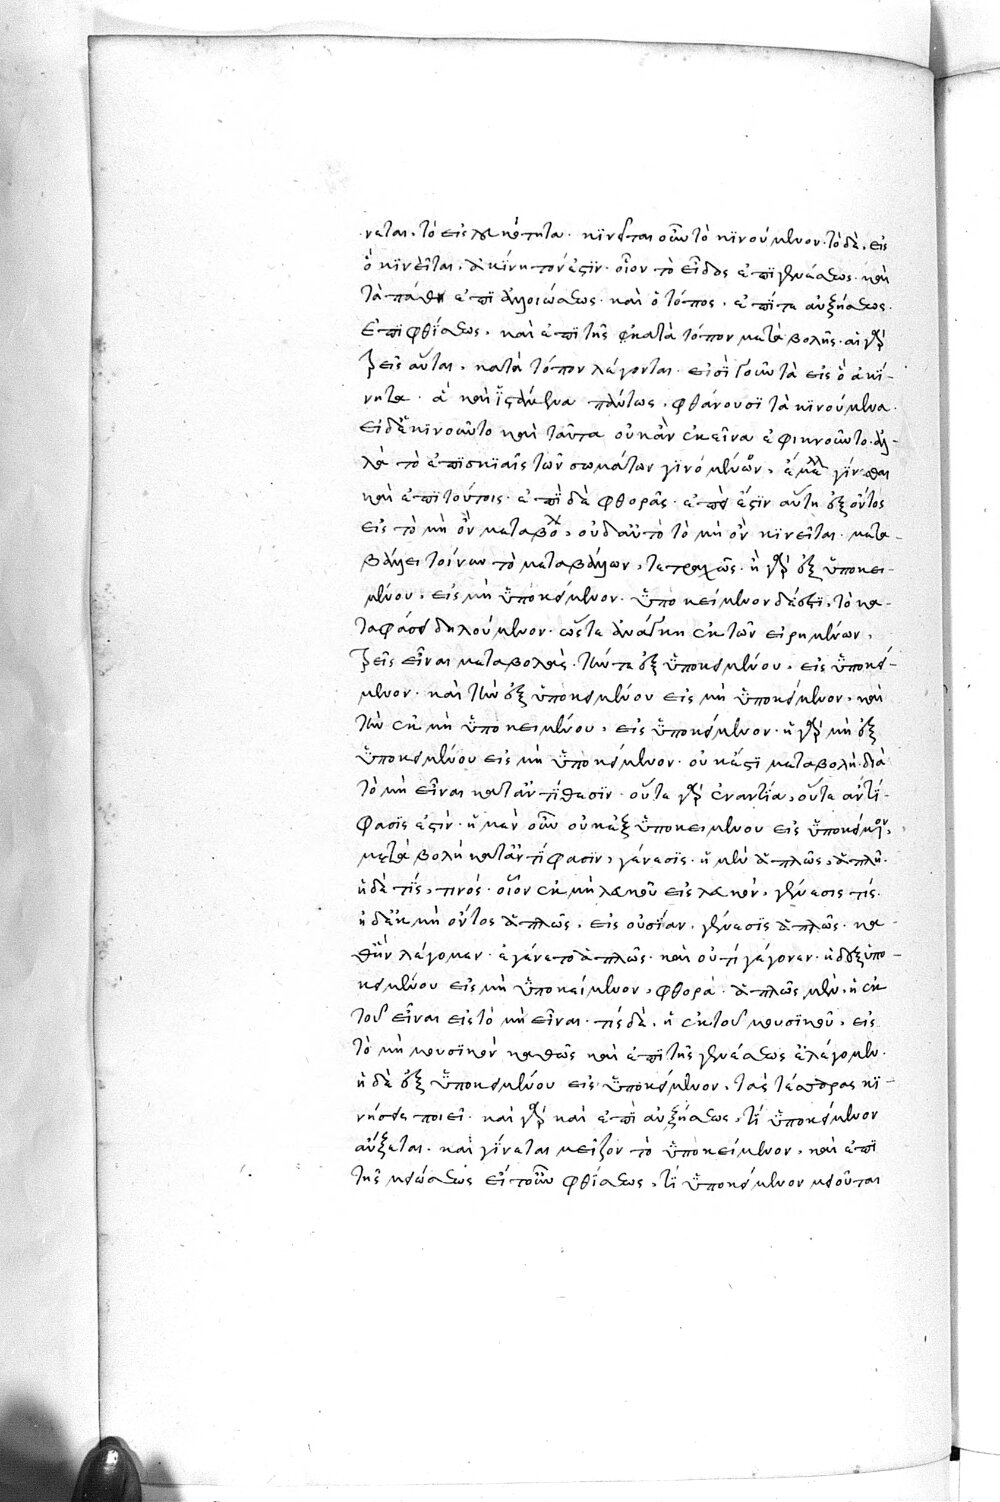 νεται, τὸ εἰς λευκότητα· κινεῖται οὖν τὸ κινούμενον· τὸ δὲ, εἰς
ὃ κινεῖται, ἀκίνητόν ἐστιν· οἷον τὸ εἶδος ἐπὶ γενέσεως· καὶ
τὰ πάθη ἐπὶ ἀλλοιώσεως· καὶ ὁ τόπος, ἐπί τε αὐξήσεως.
ἐπὶ φθίσεως, καὶ ἐπὶ τῆς κατὰ τόπον μεταβολῆς· αἱ γὰρ
τρεῖς αὗται, κατὰ τόπον λέγονται· εἰσὶ γοῦν τὰ εἰς ὃ ἀκί-
νητα· ἃ καὶ πάντως, φθάνουσι τὰ κινούμενα.
εἰ δὲ κινοῦντο καὶ ταῦτα οὐκ ἂν ἐκεῖνα ἐφικνοῦντο· ἀλ-
λὰ τὸ ἐπὶ σκιαῖς τῶν σωμάτων γινόμενον, ἔμελλε γίνεσθαι
καὶ ἐπὶ τούτοις· ἐπὶ δὲ φθορᾶς· ἐπεὶ ἐστὶν αὕτη ἐξ ὄντος
εἰς τὸ μὴ ὂν μεταβολὴ, οὐδ' αὐτὸ τὸ μὴ ὂν κινεῖται· μετα-
βάλλει τοίνυν τὸ μεταβάλλον, τετραχῶς· ἢ γὰρ ἐξ ὑποκει-
μένου, εἰς μὴ ὑποκείμενον· ὑποκείμενον δέ ἐστι, τὸ κα-
ταφάσει δηλούμενον· ὥστε ἀνάγκη ἐκ τῶν εἰρημένων,
τρεῖς εἶναι μεταβολὰς· τήν τε ἐξ ὑποκειμένου, εἰς ὑποκεί-
μενον· καὶ τὴν ἐξ ὑποκειμένου εἰς μὴ ὑποκείμενον, καὶ
τὴν ἐκ μὴ ὑποκειμένου, εἰς ὑποκείμενον· ἡ γὰρ μὴ ἐξ
ὑποκειμένου εἰς μὴ ὑποκείμενον· οὐκ ἔστι μεταβολὴ· διὰ
τὸ μὴ εἶναι κατ' ἀντίθεσιν· οὔτε γὰρ ἐναντία, οὔτε ἀντί-
φασις ἐστίν· ἡ μὲν οὖν οὐκ ἐξ ὑποκειμένου εἰς ὑποκείμενον,
μεταβολὴ κατ' ἀντίφασιν, γένεσις· ἡ μὲν ἁπλῶς, ἁπλῆ·
ἡ δὲ τὶς, τινός· οἷον ἐκ μὴ λευκοῦ εἰς λευκόν, γένεσις τίς·
ἡ δ' ἐκ μὴ ὄντος ἁπλῶς, εἰς οὐσίαν, γένεσις ἁπλῶς· κα-
θ' ἣν λέγομεν· ἐγένετο ἁπλῶς· καὶ οὐ τὶ γέγονεν· ἡ δ' ἐξ ὑπο-
κειμένου εἰς μὴ ὑποκείμενον, φθορά· ἁπλῶς μὲν, ἡ ἐκ
τοῦ εἶναι εἰς τὸ μὴ εἶναι· τὶς δὲ, ἡ ἐκ τοῦ μουσικοῦ, εἰς
τὸ μὴ μουσικὸν καθὼς καὶ ἐπὶ τῆς γενέσεως ἐλέγομεν.
ἡ δὲ ἐξ ὑποκειμένου εἰς ὑποκείμενον, τὰς τέσσαρας κι-
νήσεις ποιεῖ· καὶ γὰρ καὶ ἐπὶ αὐξήσεως, τὶ ὑποκείμενον
αὔξεται, καὶ γίνεται μεῖζον τὸ ὑποκείμενον, καὶ ἐπὶ
τῆς μειώσεως εἴτουν φθίσεως, τὶ ὑποκείμενον μειοῦται